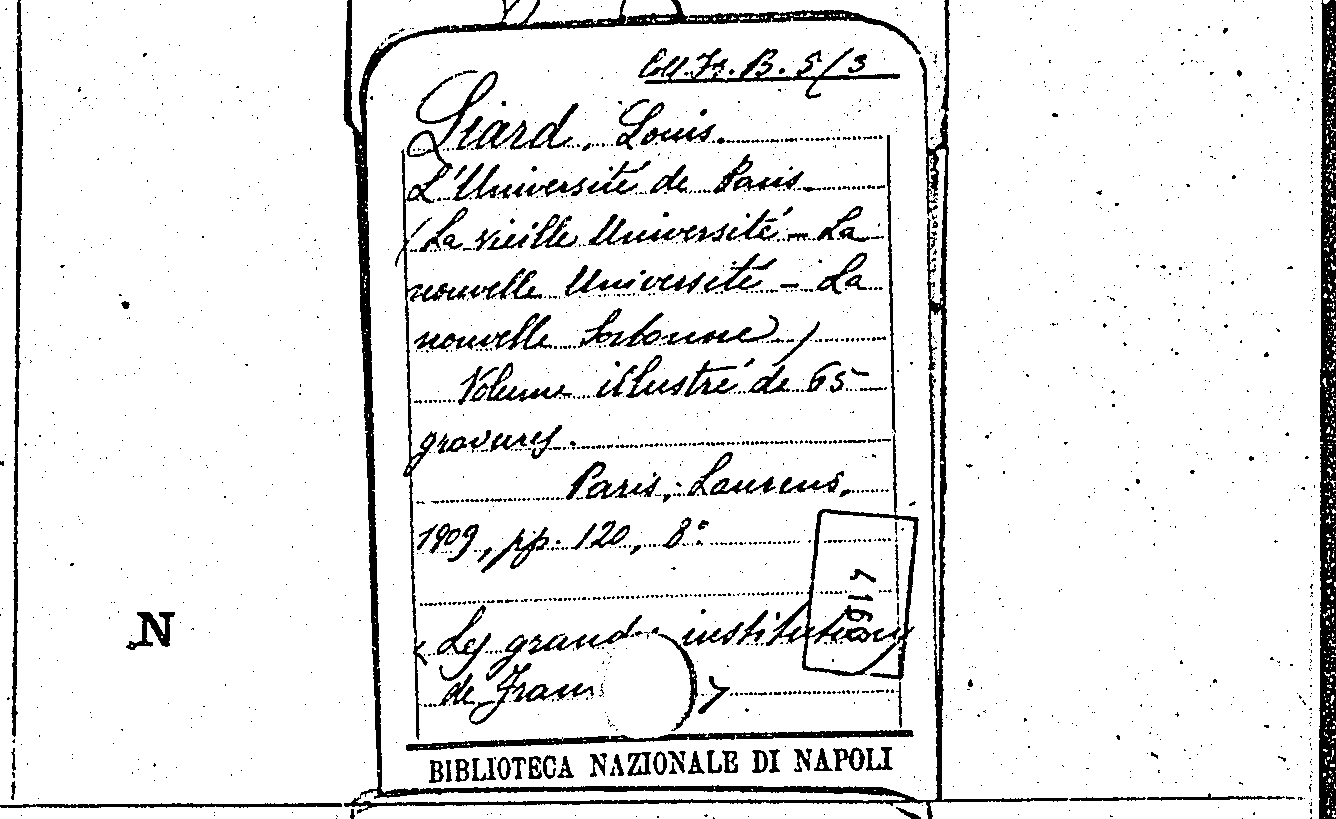 Coll. Fr. B. 5/3
Liard, Louis.
L'Université de Paris.
(La vieille Université - La
nouvelle Université - La
nouvelle Sorbonne)
Volume illustré de 65
gravures.
Paris, Laurens,
1909, pp. 120, 8°
« Les grandes institutions
de Fran »
BIBLIOTECA NAZIONALE DI NAPOLI
N